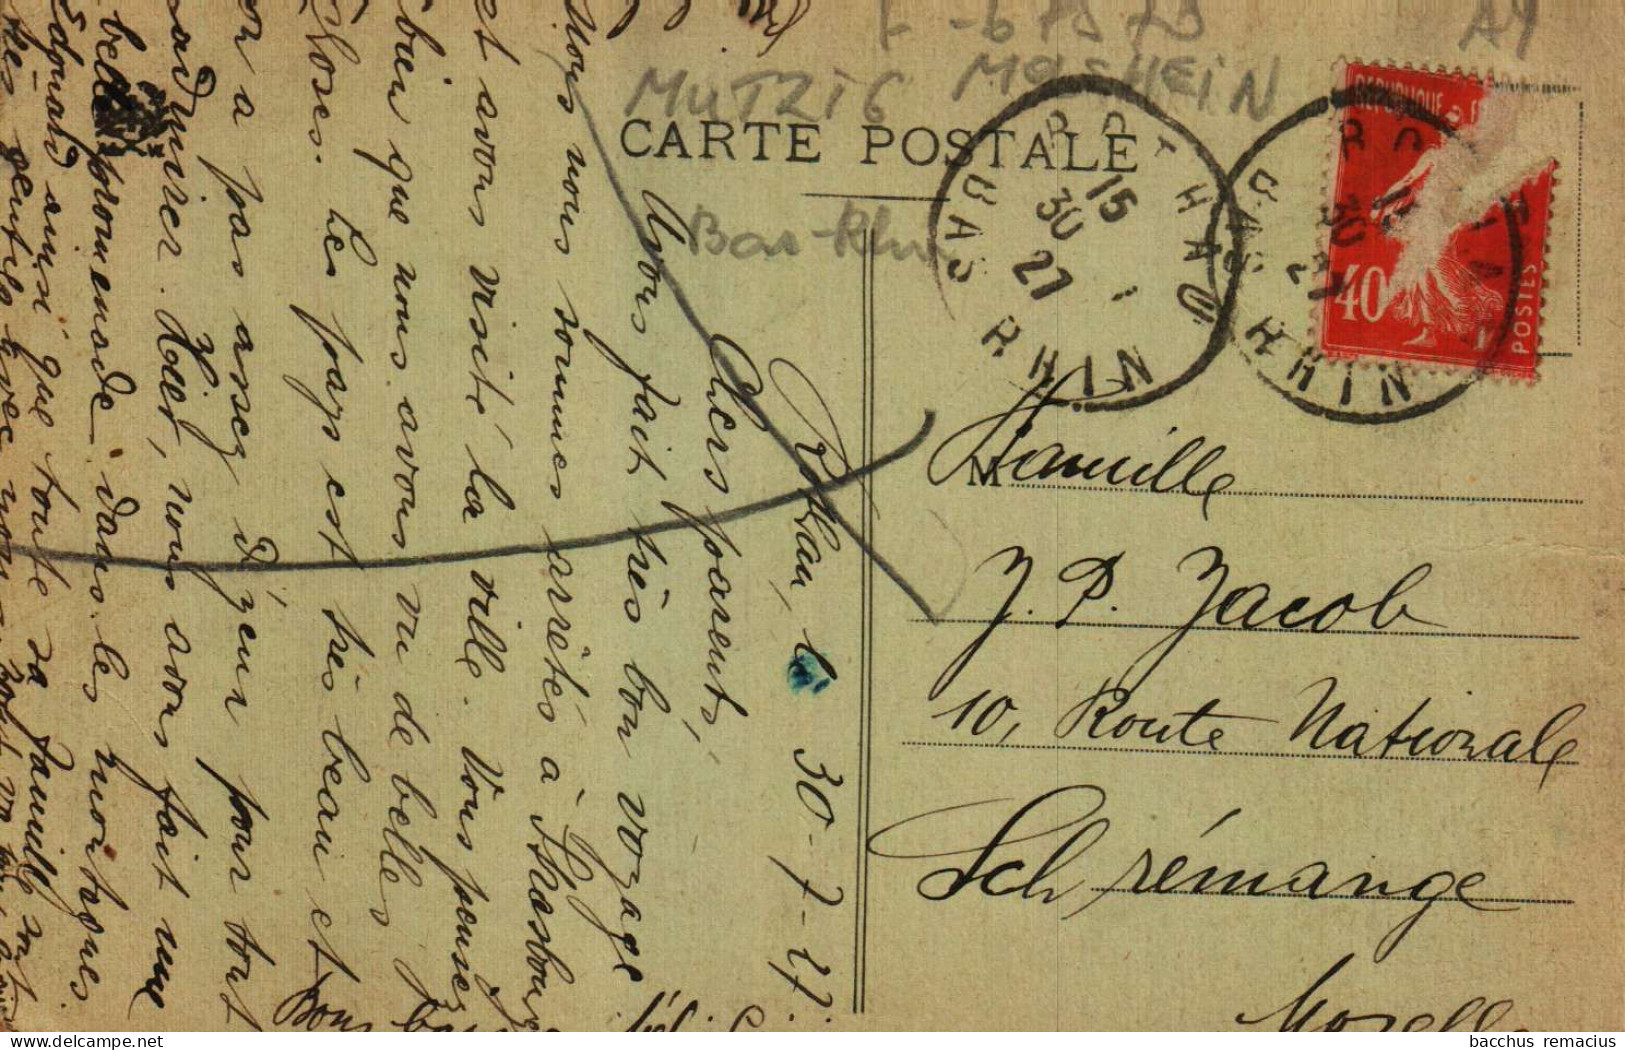 MUTZIG MOLSHEIM
Bas-Rhin
CARTE POSTALE
ROTHAU
BAS RHIN
15
30
27
ROTHAU
BAS RHIN
15
30
27
REPUBLIQUE
40
POSTES
M
Famille
J. P. Jacob
10, Route Nationale
Schrémange
Moselle
Rothau, le 30-7-27.
Chers parents,
Avons fait très bon voyage
nous nous sommes arrêtés à Strasbourg
et avons visité la ville. Vous pensez
bien que nous avons vu de belles
choses. Le pays est très beau et
on a pas assez d'yeux pour tout
admirer. Hier, nous avons fait une
belle promenade dans les montagnes.
Edouard ainsi que toute sa famille
très gentils avec nous
bacchus remacius